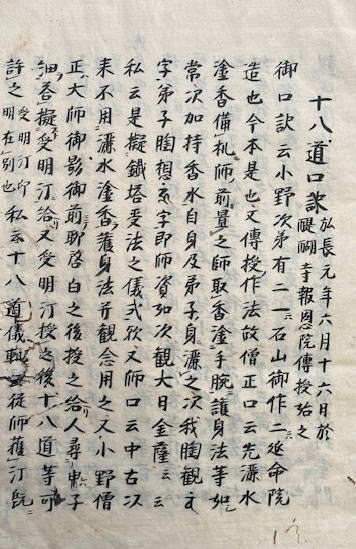 十八道口訣 弘長元年六月十六日於
醍醐寺報恩院傳授始之
御口訣云小野次第有二一石山御作二延命院
造也今本是也又傳授作法故僧正口云先灑水
塗香備机師前置之師取香塗手腕護身法等如
常次加持香水自身及弟子身灑之次我胸觀
字弟子胸想字即師資如次觀大日金薩云云
私云是擬鐵塔受法之儀式歟又師口云中古次
来不用灑水塗香護身法并觀念用之又小野僧
正大師御影御前取啓白之後授之給人尋申子
細答擬受明灌給又受明灌授之後十八道等可
許之受明灌印
明在別也 私云十八道儀軌從師獲灌既